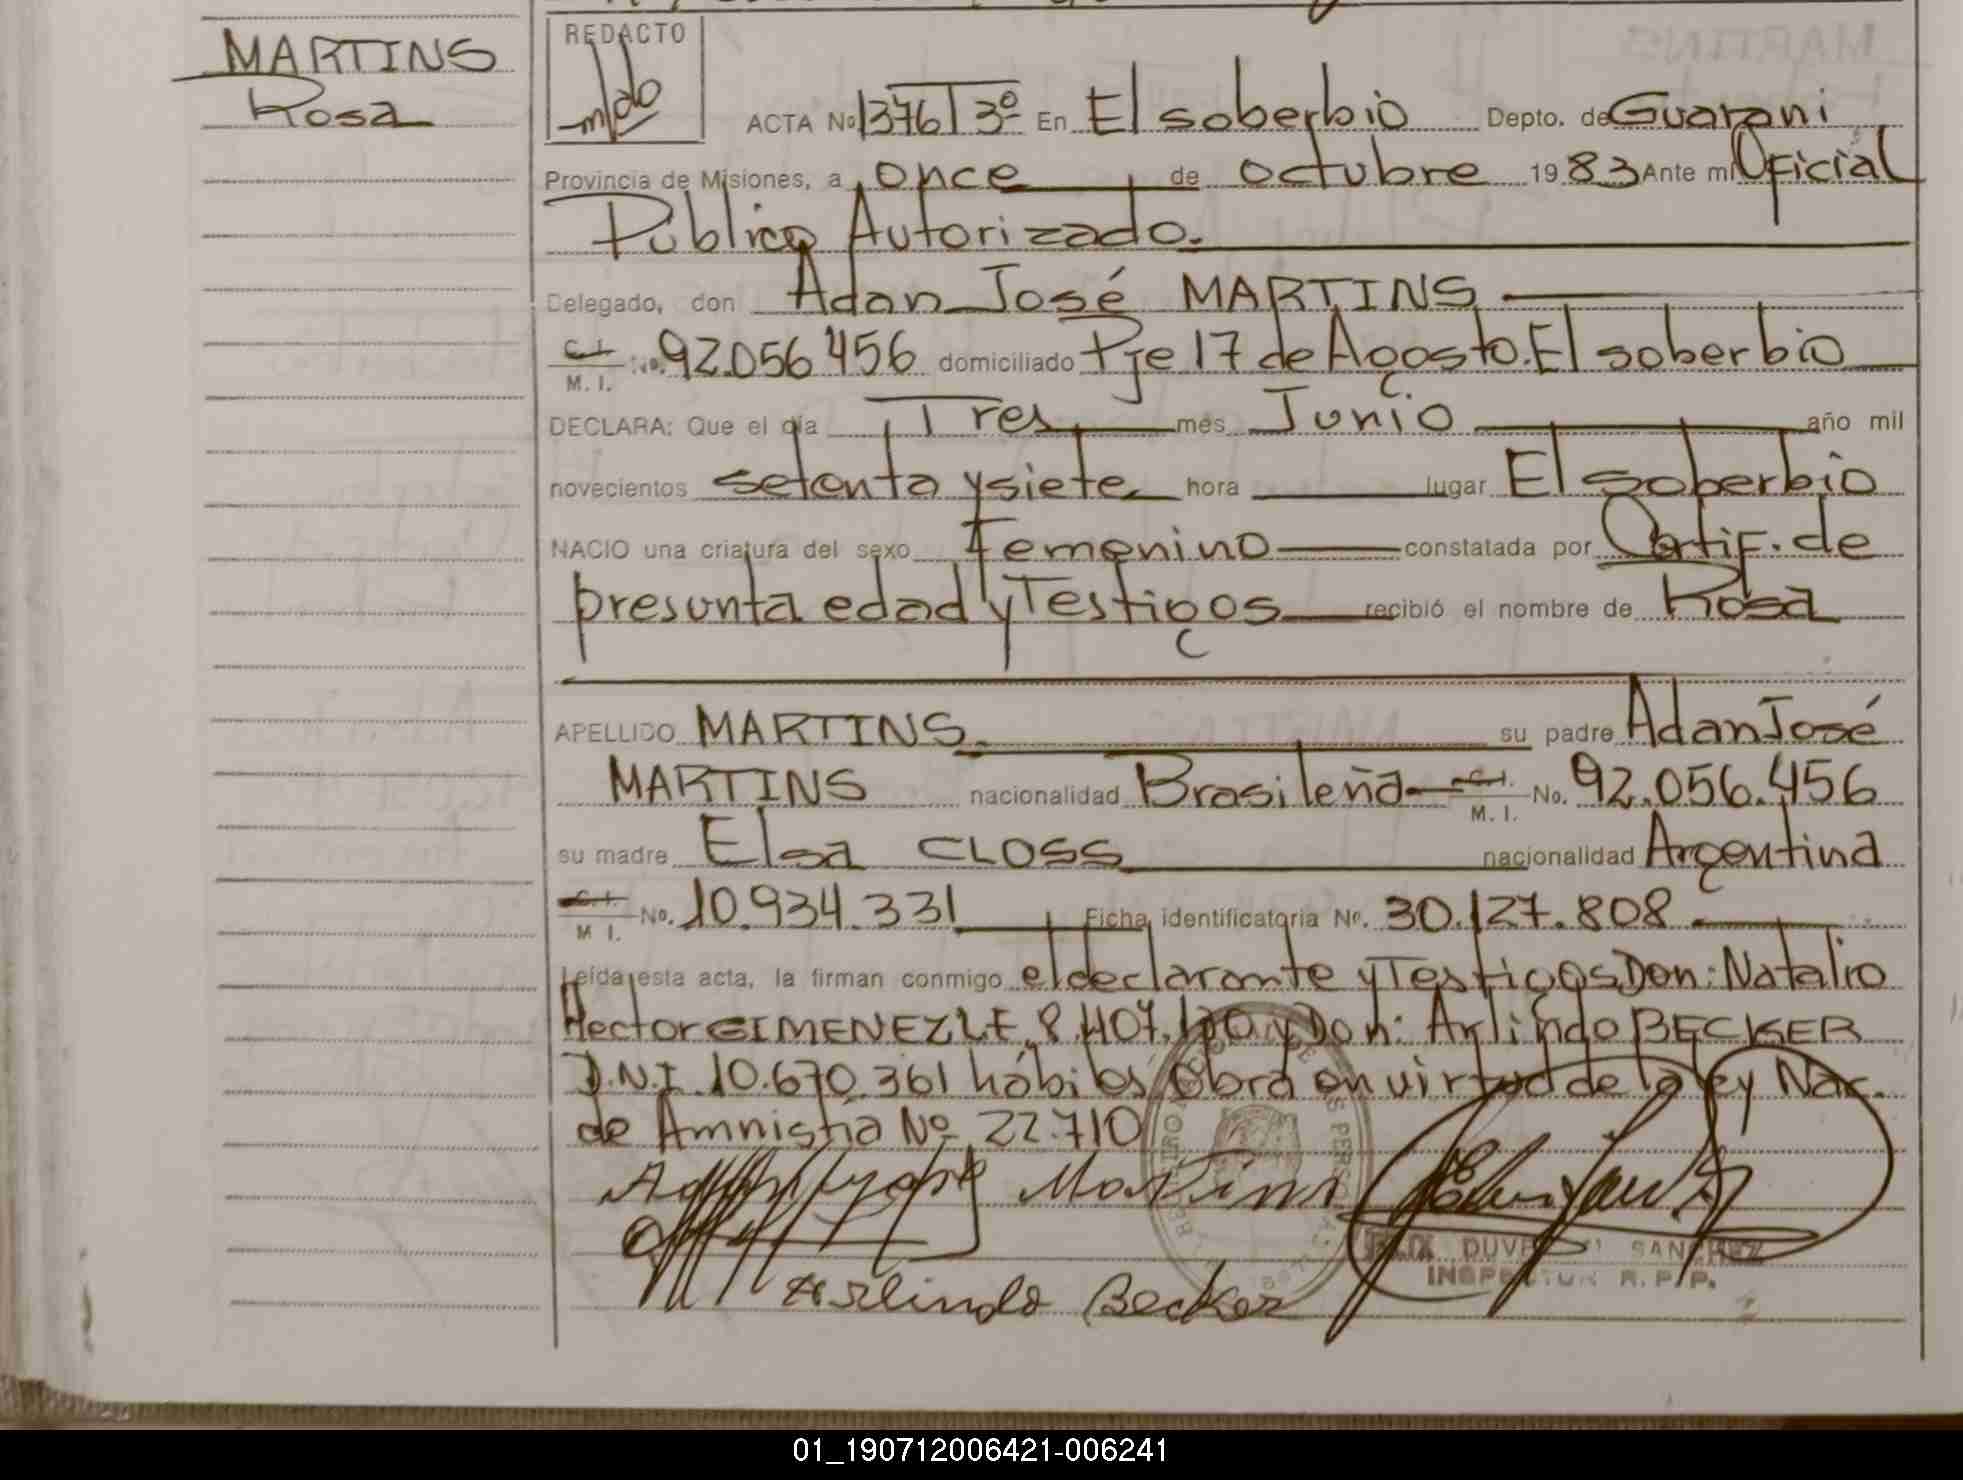 MARTINS
Rosa
REDACTO
ACTA No 1376 T 3º En El soberbio Depto. de Guarani
Provincia de Misiones, a once de octubre 1983 Ante mi Oficial
Publico Autorizado.
Delegado, don Adan José MARTINS
C.I. M.I. No. 92.056456 domiciliado Pje 17 de Agosto. El soberbio
DECLARA: Que el día Tres mes Junio año mil
novecientos setenta y siete hora lugar El soberbio
NACIO una criatura del sexo Femenino constatada por Certif. de
presunta edad y Testigos recibió el nombre de Rosa
APELLIDO MARTINS. su padre Adan José
MARTINS nacionalidad Brasileña C.I. M.I. No. 92.056.456
su madre Elsa CLOSS nacionalidad Argentina
C.I. M I. No. 10.934.331 Ficha identificatoria Nº. 30.127.808
Leída esta acta, la firman conmigo el declarante y Testigos Don: Natalio
Hector GIMENEZ L.E. 8.407.120 y Don: Arlindo BECKER
D.N.I. 10.670.361 hábiles Obra en virtud de la ley Nac.
de Amnistia Nº 22.710
Martins
SANCHEZ
INSPECTOR R.P.P.
Arlindo Becker
01_190712006421-006241